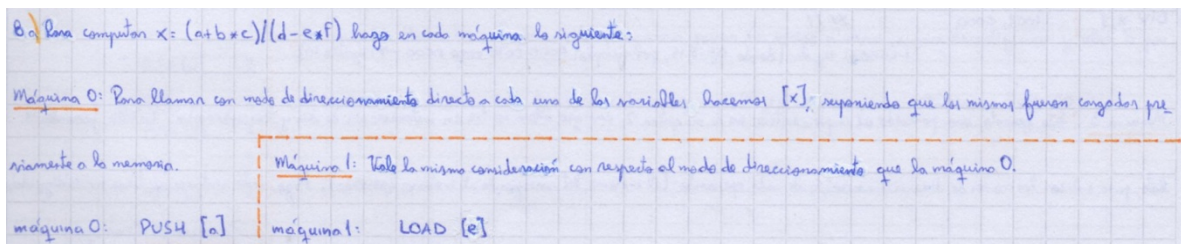 8a Para computar x = (a+b*c)/(d-e*f) hago en cada máquina lo siguiente:
Máquina 0: Para llamar con modo de direccionamiento directo a cada una de las variables hacemos [x], suponiendo que las mismas fueron cargadas pre_
viamente a la memoria.
Máquina 1: Vale la misma consideración con respecto al modo de direccionamiento que la máquina 0.
máquina 0: PUSH [a]
máquina 1: LOAD [e]